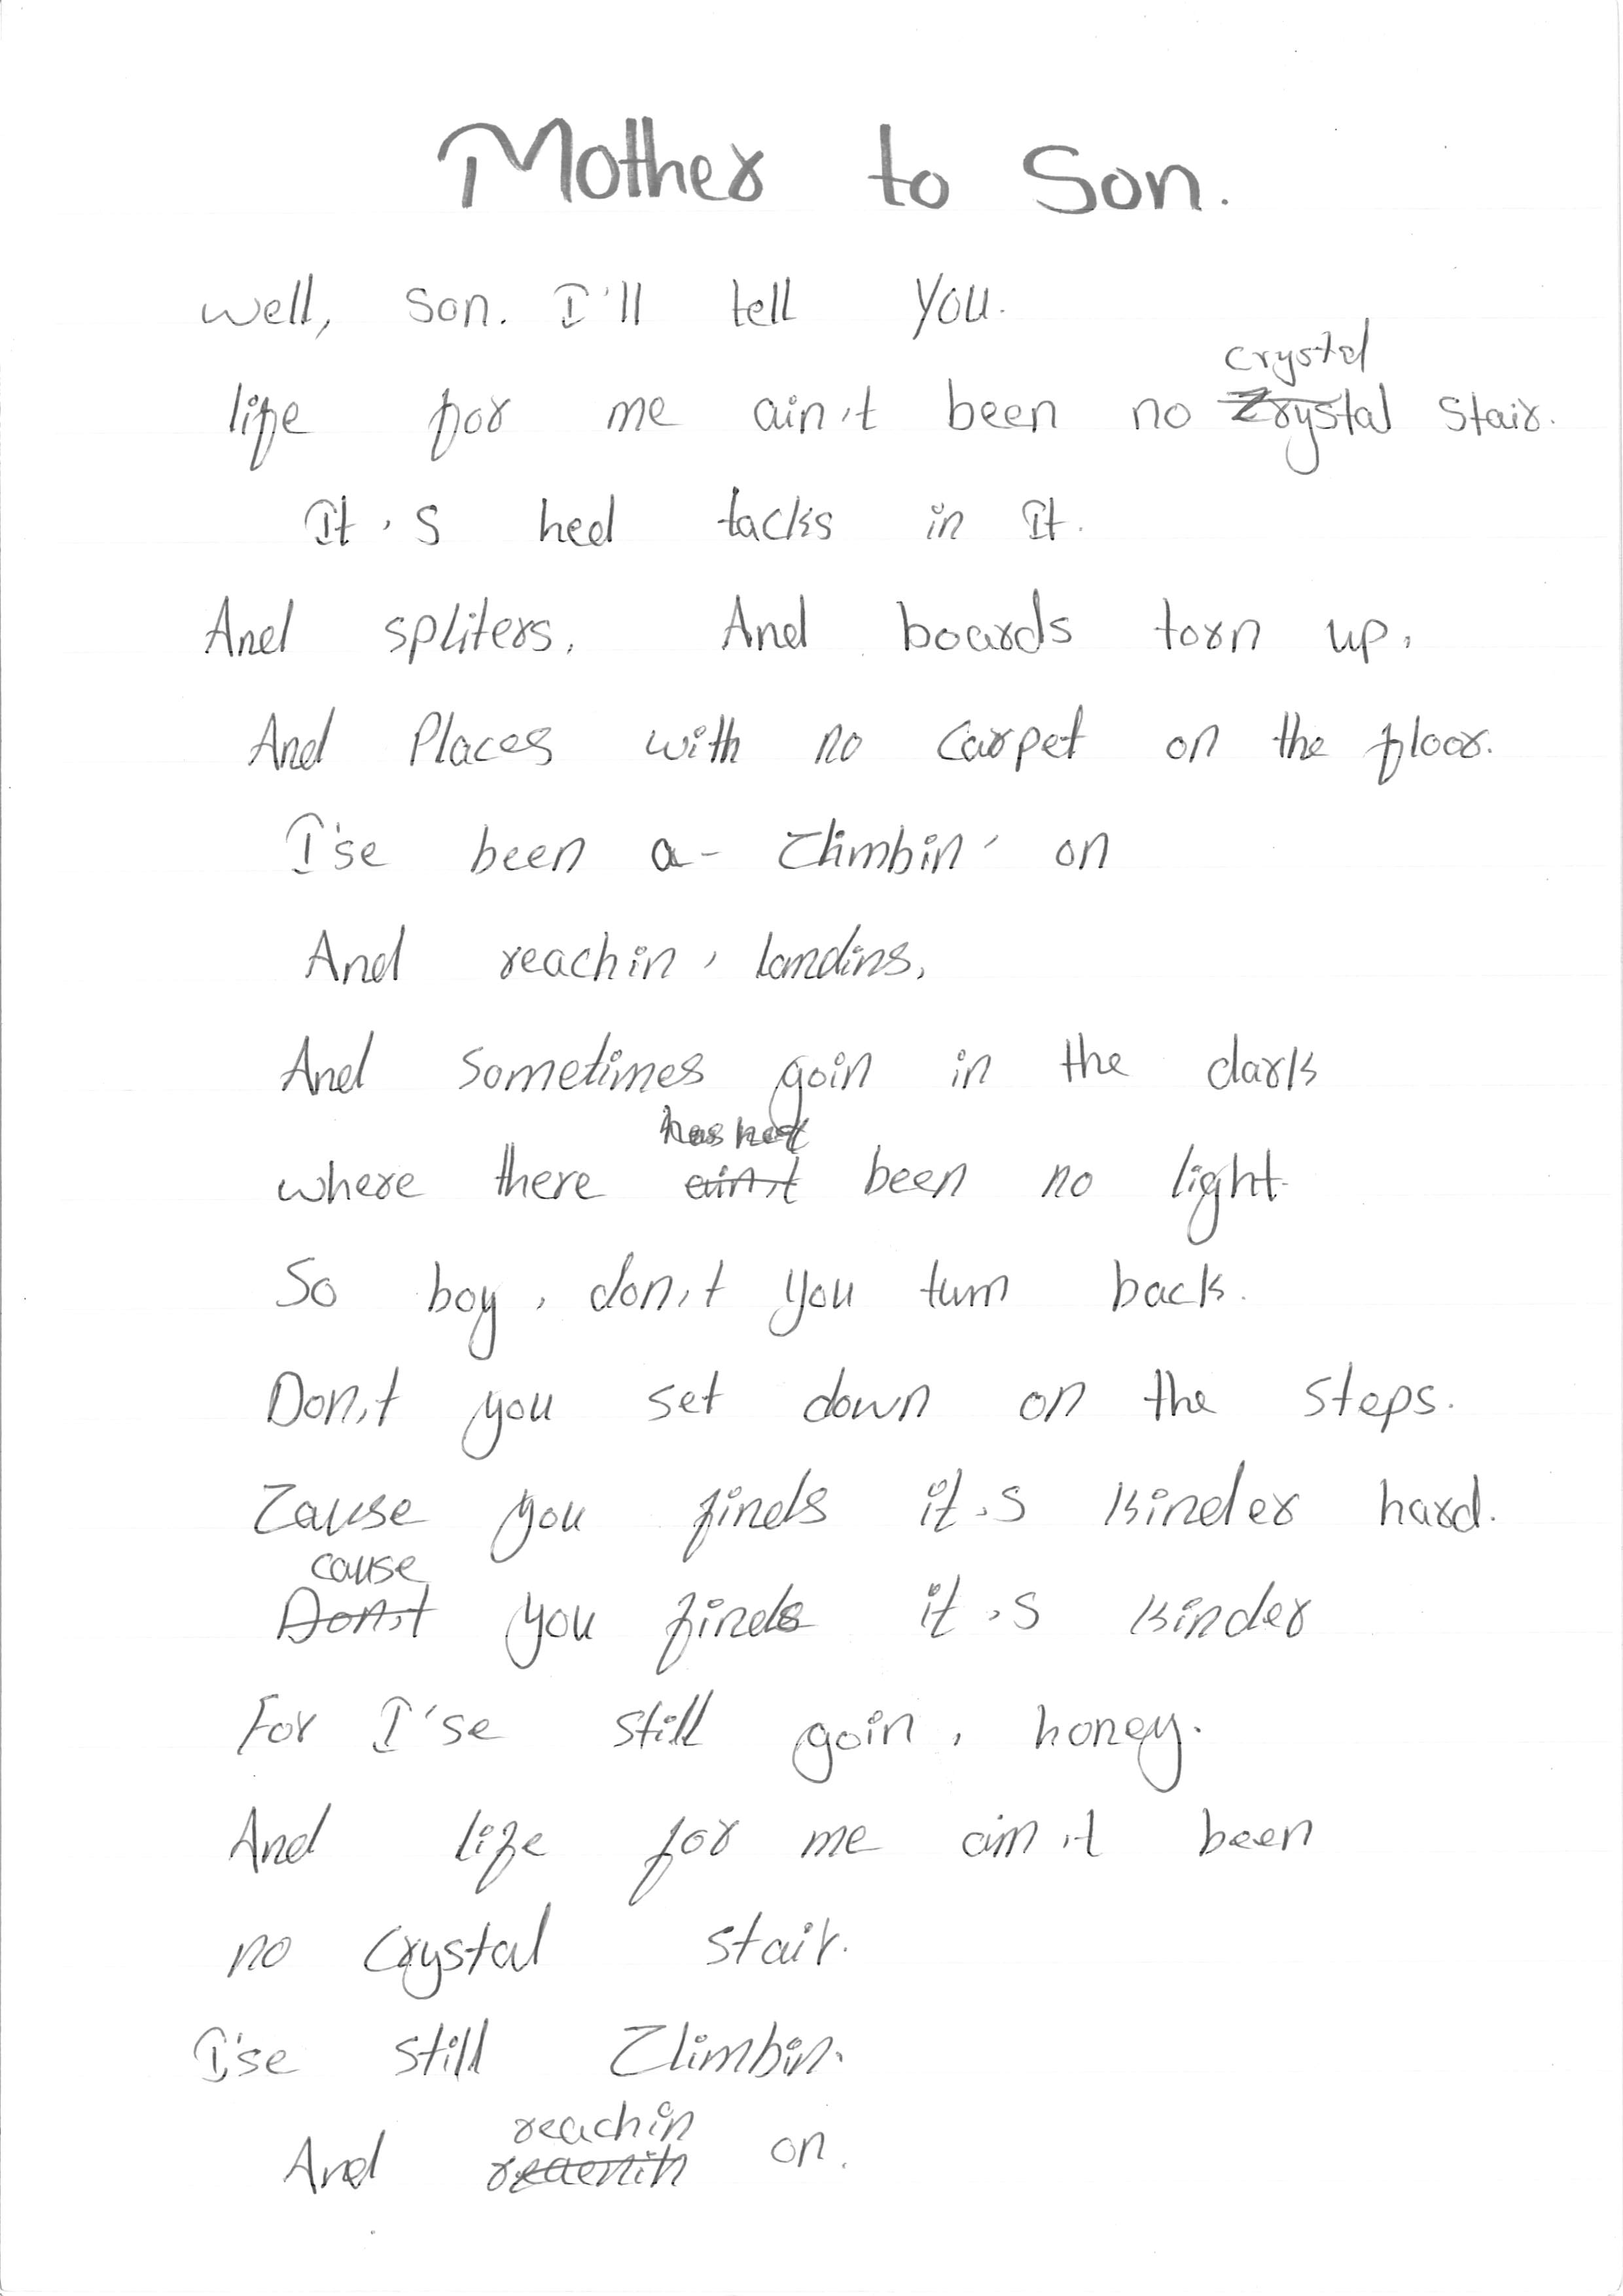 Mother to Son.
well, son. I'll tell you.
life for me ain't been no crystal stair.
It's hed tacks in It.
And spliters, And boards torn up,
And Places with no carpet on the floor.
I'se been a- climbin' on
And reachin' landins,
And sometimes goin in the dark
where there has not been no light.
So boy, don't you turn back.
Don't you set down on the steps.
Cause you finds it's kinder hard.
cause you finds it's kinder
For I'se still goin, honey.
And life for me ain't been
no crystal stair.
I'se still Climbin.
And reachin on.